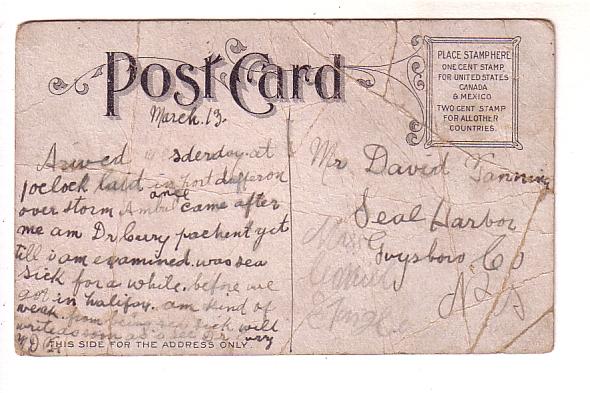 Post Card
March. 13.
PLACE STAMP HERE
ONE CENT STAMP
FOR UNITED STATES
CANADA
& MEXICO
TWO CENT STAMP
FOR ALL OTHER
COUNTRIES.
Arived sderday at
1 oclock laid in port
over storm Ambul ance came after
me am Dr Cury pachent yet
till i am examined. was sea
sick for a while. before we
got in halifax. am kind of
weak. from being sea sick will
write as soon as
Mr David Fanning
Seal Harbor
Guysboro Co
N S
THIS SIDE FOR THE ADDRESS ONLY.